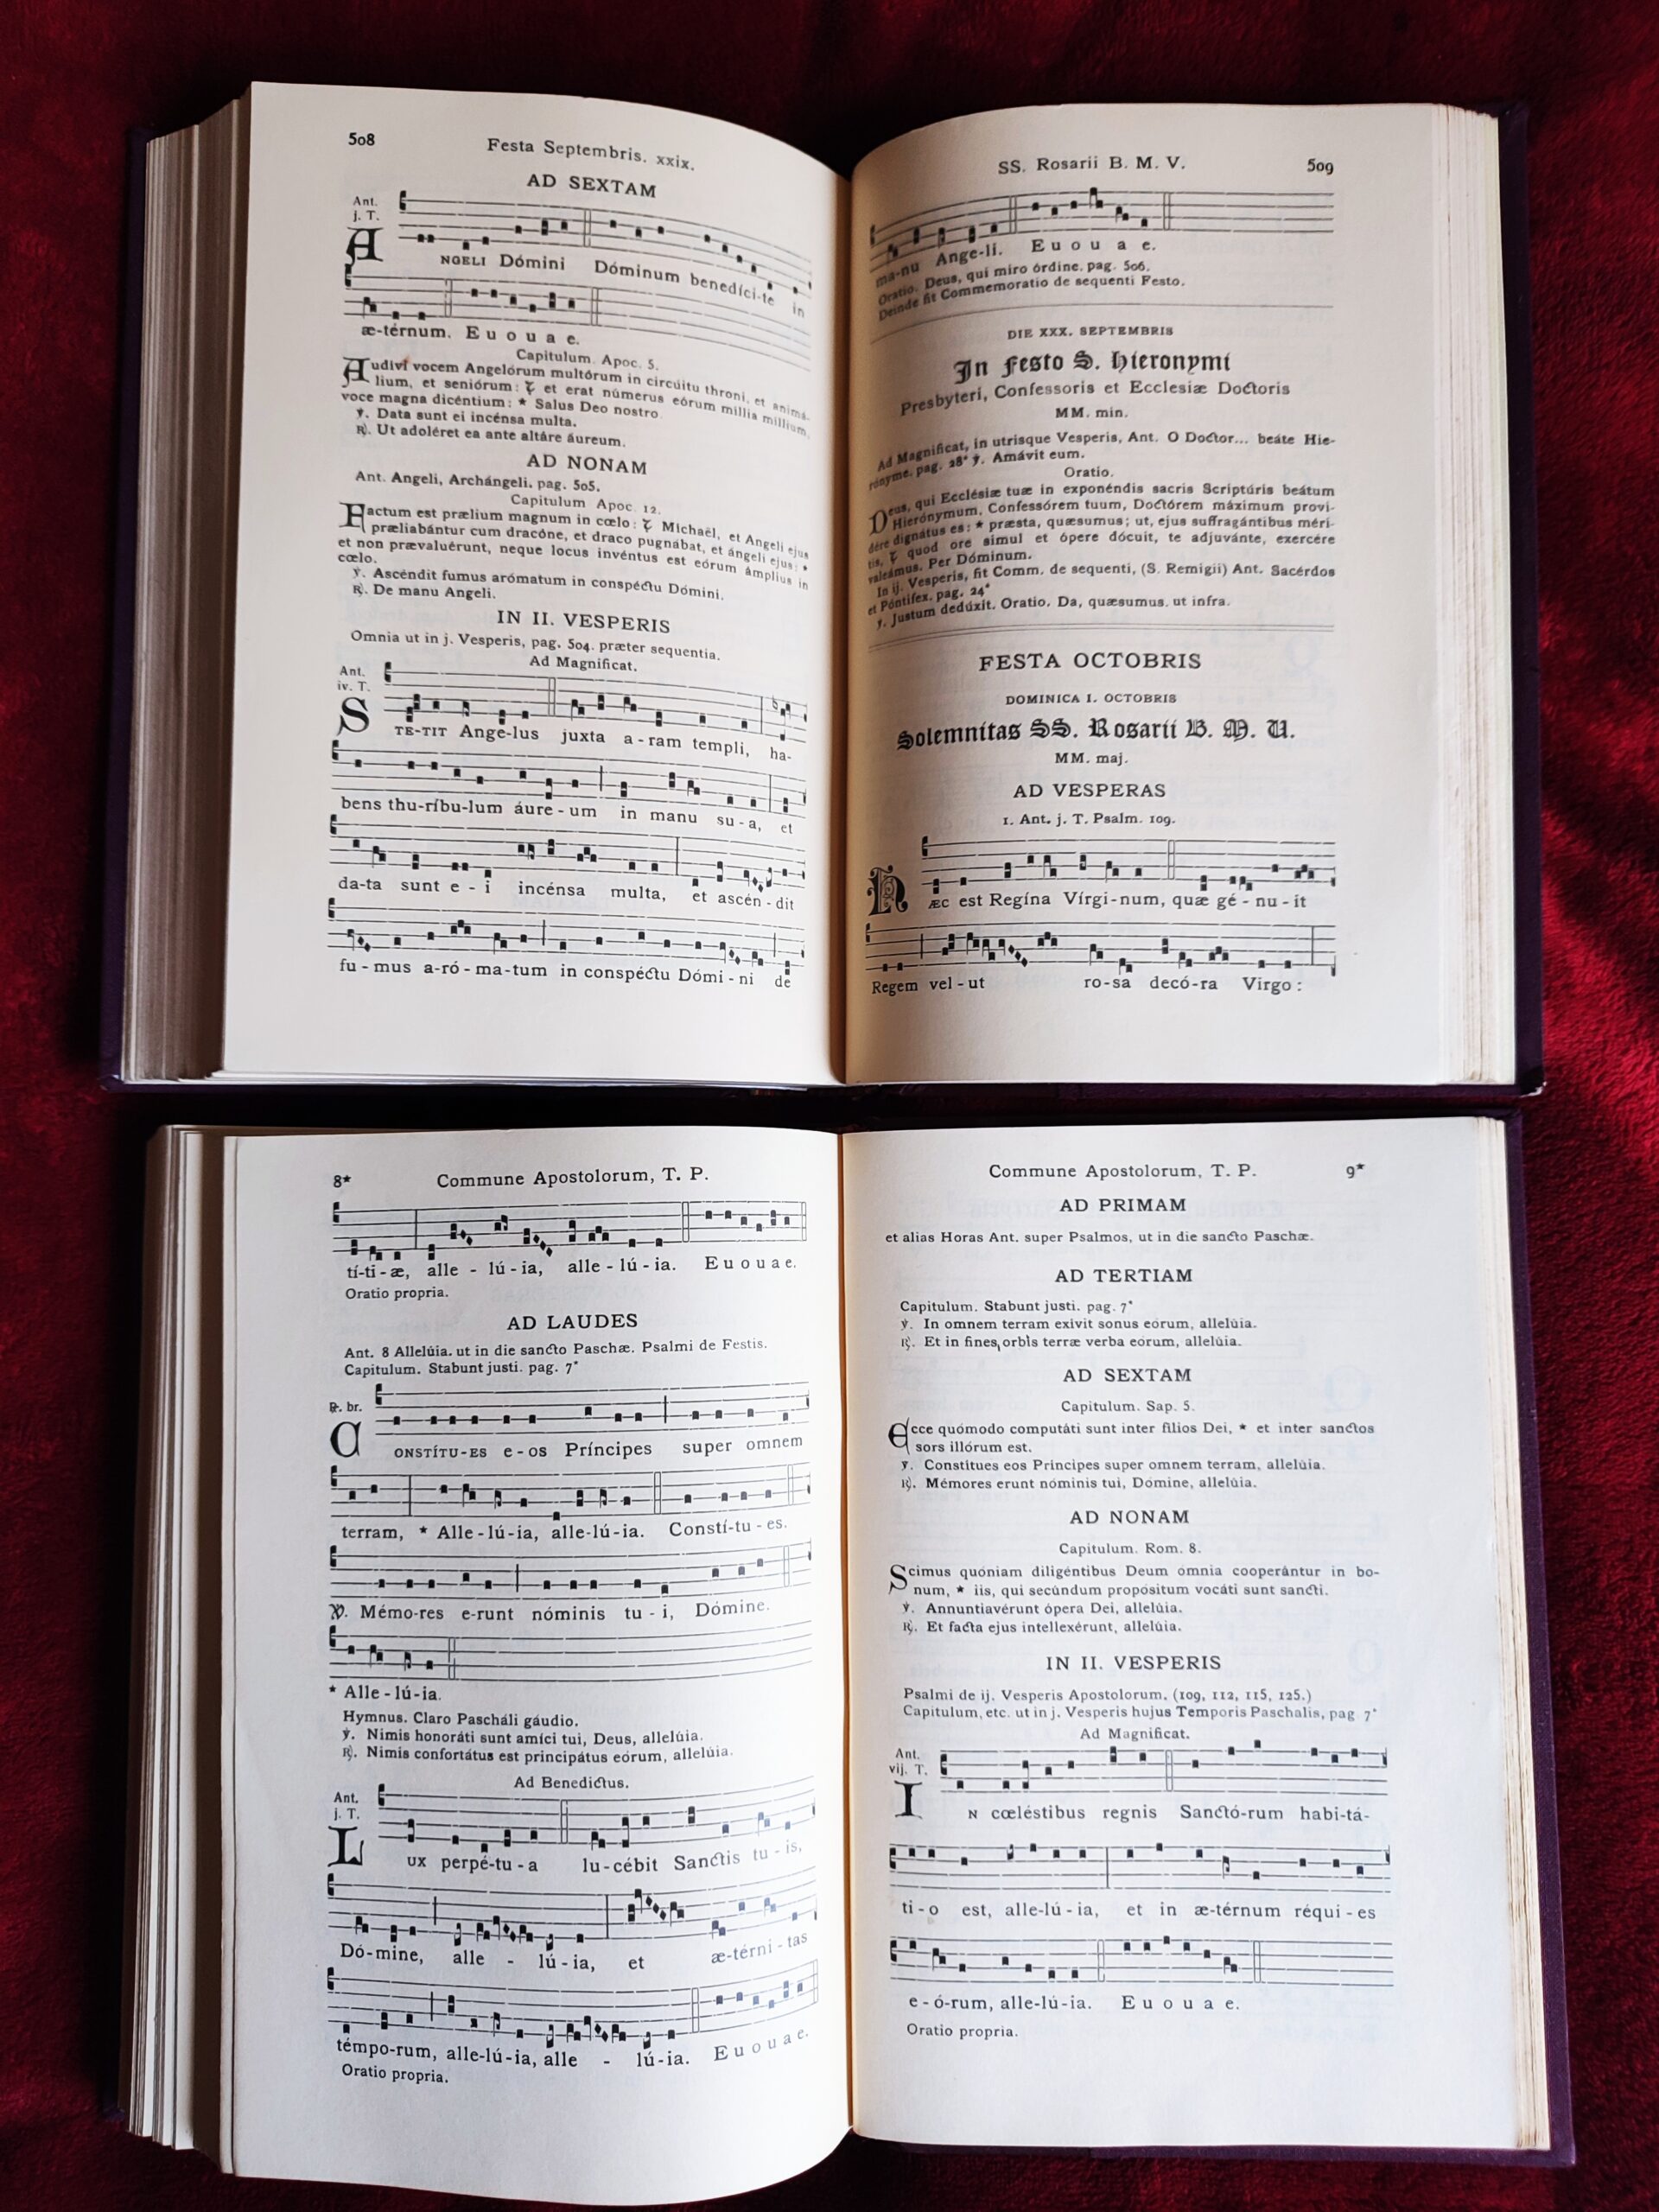 508
Festa Septembris. xxix.
AD SEXTAM
Ant.
j. T.
ANGELI Dómini Dóminum benedíci-te in
æ-térnum. E u o u a e.
Capitulum. Apoc. 5.
Audívi vocem Angelórum multórum in circúitu throni, et animá-
lium, et seniórum: ⁊ et erat númerus eórum míllia míllium,
voce magna dicéntium: * Salus Deo nostro
℣. Data sunt ei incénsa multa.
℟. Ut adoléret ea ante altáre áureum.
AD NONAM
Ant. Angeli, Archángeli. pag. 505.
Capitulum Apoc. 12.
Factum est prælium magnum in cœlo: ⁊ Míchaël, et Angeli ejus
præliabántur cum dracóne, et draco pugnábat, et ángeli ejus: *
et non prævaluérunt, neque locus invéntus est eórum ámplius in
cœlo.
℣. Ascéndit fumus arómatum in conspéctu Dómini.
℟. De manu Angeli.
IN II. VESPERIS
Omnia ut in j. Vesperis, pag. 504. præter sequentia.
Ad Magnificat.
Ant.
iv. T.
STE-TIT Ange-lus juxta a-ram templi, ha-
bens thu-ríbu-lum áure-um in manu su-a, et
da-ta sunt e-i incénsa multa, et ascén-dit
fu-mus a-ró-ma-tum in conspéctu Dómi-ni de
SS. Rosarii B. M. V.
509
ma-nu Ange-li. E u o u a e.
Oratio. Deus, qui miro órdine. pag. 506.
Deinde fit Commemoratio de sequenti Festo.
DIE XXX. SEPTEMBRIS
In Festo S. Hieronymi
Presbyteri, Confessoris et Ecclesiæ Doctoris
MM. min.
Ad Magnificat, in utrisque Vesperis, Ant. O Doctor... beáte Hie-
rónyme. pag. 28* ℣. Amávit eum.
Oratio.
Deus, qui Ecclésiæ tuæ in exponéndis sacris Scriptúris beátum
Hierónymum, Confessórem tuum, Doctórem máximum provi-
dére dignátus es: * præsta, quæsumus; ut, ejus suffragántibus méri-
tis, ⁊ quod ore simul et ópere dócuit, te adjuvánte, exercére
valeámus. Per Dóminum.
In ij. Vesperis, fit Comm. de sequenti, (S. Remigii) Ant. Sacérdos
et Póntifex. pag. 24*
℣. Justum dedúxit. Oratio. Da, quæsumus. ut infra.
FESTA OCTOBRIS
DOMINICA I. OCTOBRIS
Solemnitas SS. Rosarii B. M. V.
MM. maj.
AD VESPERAS
1. Ant. j. T. Psalm. 109.
HÆC est Regína Vírgi-num, quæ gé-nu-it
Regem vel-ut ro-sa decó-ra Virgo:
8*
Commune Apostolorum, T. P.
tí-ti-æ, alle - lú-ia, alle-lú-ia. E u o u a e.
Oratio propria.
AD LAUDES
Ant. 8 Allelúia. ut in die sancto Paschæ. Psalmi de Festis.
Capitulum. Stabunt justi. pag. 7*
℟. br.
CONSTÍTU-ES e-os Príncipes super omnem
terram, * Alle-lú-ia, alle-lú-ia. Constí-tu-es.
℣. Mémo-res e-runt nóminis tu-i, Dómine.
* Alle-lú-ia.
Hymnus. Claro Pascháli gáudio.
℣. Nimis honoráti sunt amíci tui, Deus, allelúia.
℟. Nimis confortátus est principátus eórum, allelúia.
Ad Benedictus.
Ant.
j. T.
LUX perpé-tu-a lu-cébit Sanctis tu-is,
Dó-mine, alle - lú-ia, et æ-térni-tas
témpo-rum, alle-lú-ia, alle - lú-ia. E u o u a e.
Oratio propria.
Commune Apostolorum, T. P.
9*
AD PRIMAM
et alias Horas Ant. super Psalmos, ut in die sancto Paschæ.
AD TERTIAM
Capitulum. Stabunt justi. pag. 7*
℣. In omnem terram exívit sonus eórum, allelúia.
℟. Et in fines orbis terræ verba eórum, allelúia.
AD SEXTAM
Capitulum. Sap. 5.
Ecce quómodo computáti sunt inter fílios Dei, * et inter sanctos
sors illórum est.
℣. Constítues eos Príncipes super omnem terram, allelúia.
℟. Mémores erunt nóminis tui, Dómine, allelúia.
AD NONAM
Capitulum. Rom. 8.
Scimus quóniam diligéntibus Deum ómnia cooperántur in bo-
num, * iis, qui secúndum propósitum vocáti sunt sancti.
℣. Annuntiavérunt ópera Dei, allelúia.
℟. Et facta ejus intellexérunt, allelúia.
IN II. VESPERIS
Psalmi de ij. Vesperis Apostolorum. (109, 112, 115, 125.)
Capitulum, etc. ut in j. Vesperis hujus Temporis Paschalis, pag 7*
Ad Magnificat.
Ant.
vij. T.
IN cœléstibus regnis Sanctó-rum habi-tá-
ti-o est, alle-lú-ia, et in æ-térnum réqui-es
e-ó-rum, alle-lú-ia. E u o u a e.
Oratio propria.